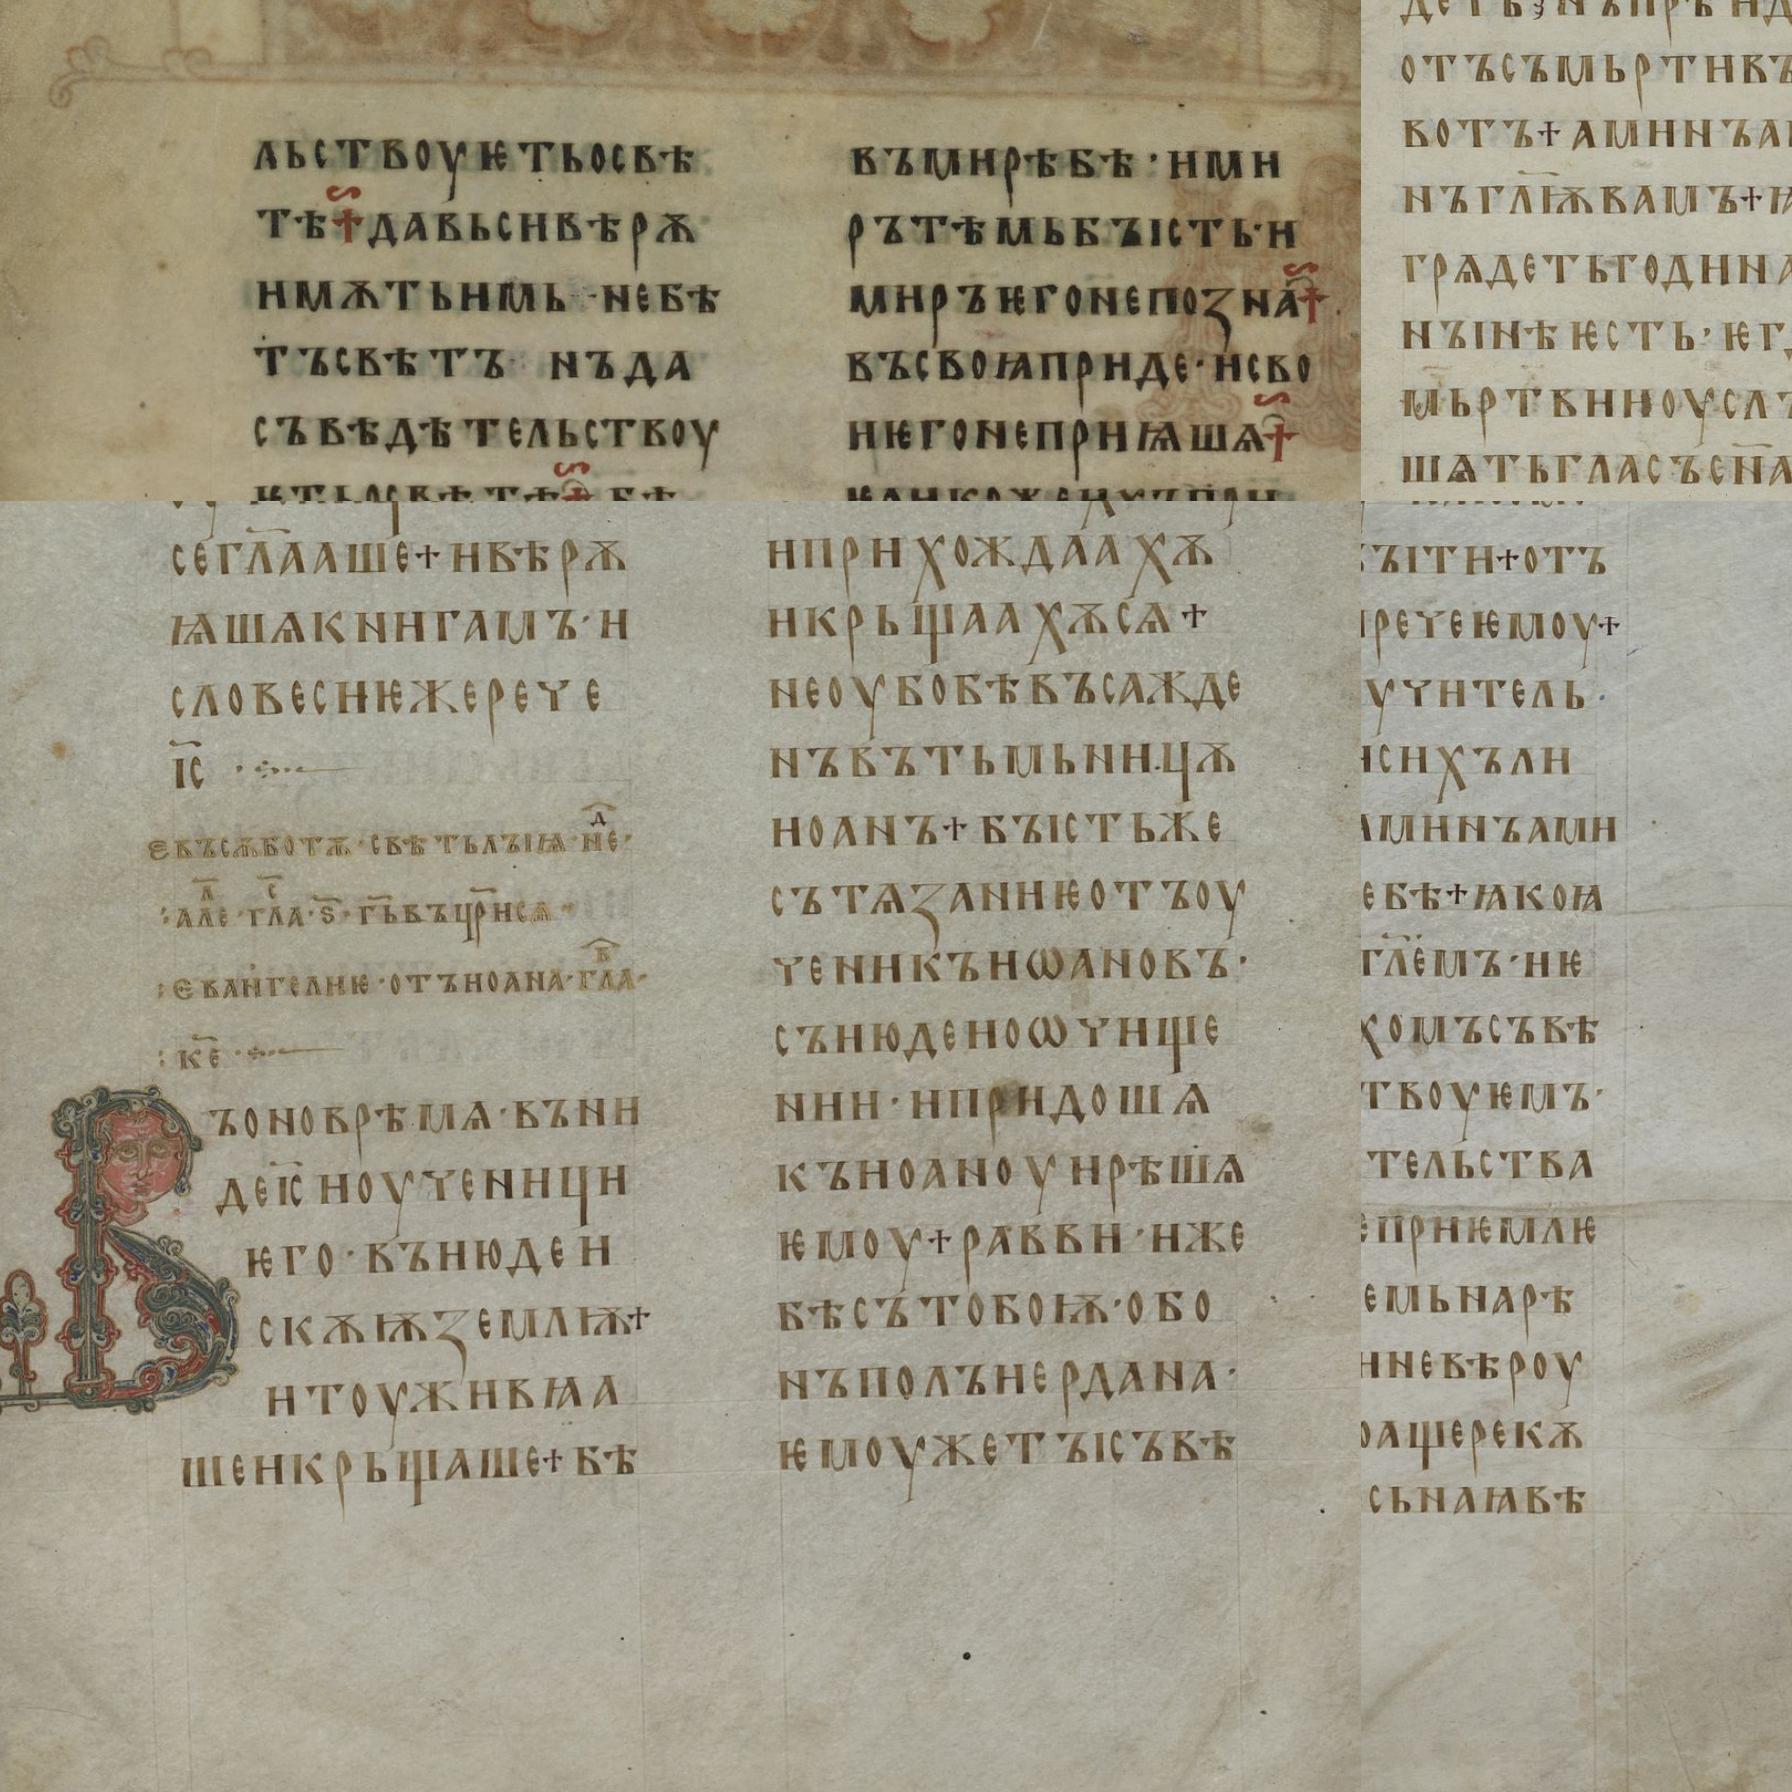 льствоуѥтьосвѣ
тѣ+давьсивѣрѫ
имѫтьимь·небѣ
тъсвѣтъ·нъда
съвѣдѣтельствоу
ѥтьосвѣтѣ+бѣ
въмирѣбѣ·ими
рътѣмьбꙑсть·и
миръѥгонепозна+
въсвоꙗприде·исво
иѥгонеприѩшѧ+
отъсъмьртивъ
вотъ+аминъам
нъгл҃ѭвамъ+ꙗ
грѧдетьгодина
нꙑнѣѥсть·ѥгд
мьртвииоуслꙑ
шѧтьгласъсн҃а
сегл҃ааше+ивѣрѫ
ѩшѧкнигамъ·и
словесиѥжерече
іс҃
евъсѫботѫ·свѣтьлꙑѩ·неⷣ·
:алеⷧ·глаⷭ·ѕ҃·гь҃въцр҃исѧ·
:еваньгелиѥ·отъиоана·глаⷡ·
:ке҃·
Въоноврѣмѧ·въни
деіс҃иоученици
ѥго·въиюдеи
скѫѭземлѭ+
итоуживꙗа
шеикрьщаше+бѣ
иприхождаахѫ
икрьщаахѫсѧ+
неоубобѣвъсажде
нъвътьмьницѫ
иоанъ+бꙑстьже
сътѧзаниѥотъоу
ченикъиѡановъ·
съиюдеиоѡчище
нии·ипридошѧ
къиоаноуирѣшѧ
ѥмоу+равви·иже
бѣсътобоѭ·обо
нъполъиердана·
ѥмоужетꙑсъвѣ
бꙑти+отъ
речеѥмоу+
учитель·
исихъли
аминъами
ебѣ+ꙗкоꙗ
гл҃емъ·иѥ
хомъсъвѣ
твоуѥмъ·
тельства
еприѥмлѥ
емьнарѣ
иневѣроу
оащерекѫ
сьнаꙗвѣ